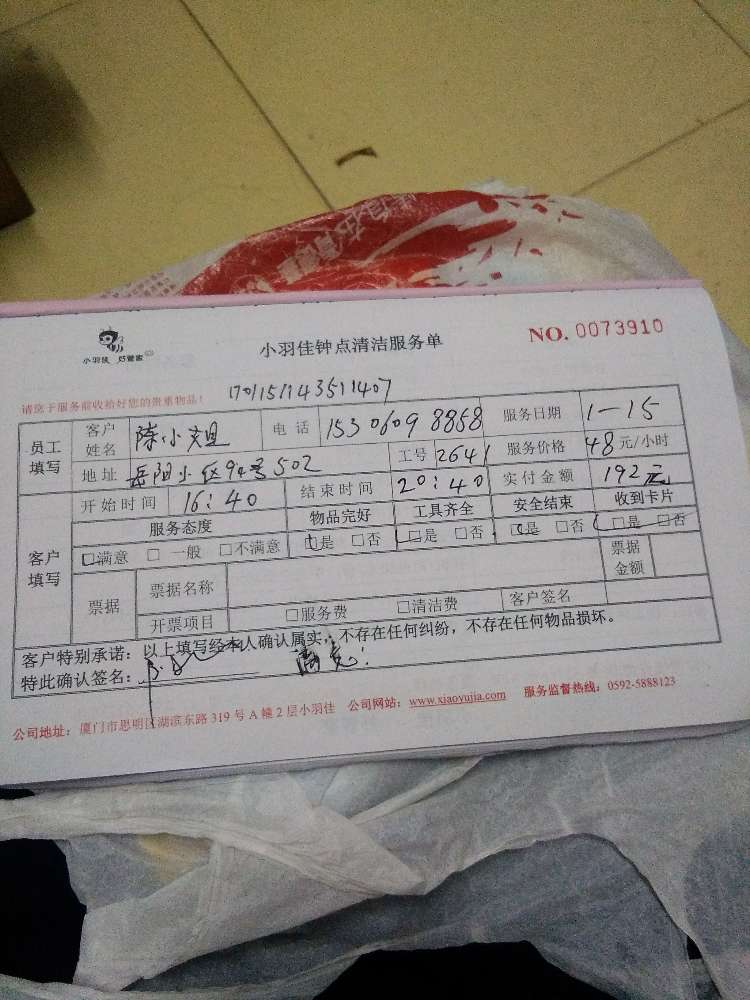 小羽佳 好管家
小羽佳钟点清洁服务单
NO. 0073910
请您于服务前收拾好您的贵重物品!
170115114351 1407
员工填写 客户姓名 陈小姐 电话 153 0609 8858 服务日期 1-15
地址 岳阳小区94号502 工号 2641 服务价格 48元/小时
客户填写 开始时间 16:40 结束时间 20:40 实付金额 192元
服务态度 物品完好 工具齐全 安全结束 收到卡片
□满意 □一般 □不满意 □是 □否 □是 □否 □是 □否 □是 □否
票据 票据名称 票据金额
开票项目 □服务费 □清洁费 客户签名
客户特别承诺:以上填写经本人确认属实,不存在任何纠纷,不存在任何物品损坏。
特此确认签名: 满意!
公司地址:厦门市思明区湖滨东路319号A幢2层小羽佳 公司网站:www.xiaoyujia.com 服务监督热线:0592-5888123